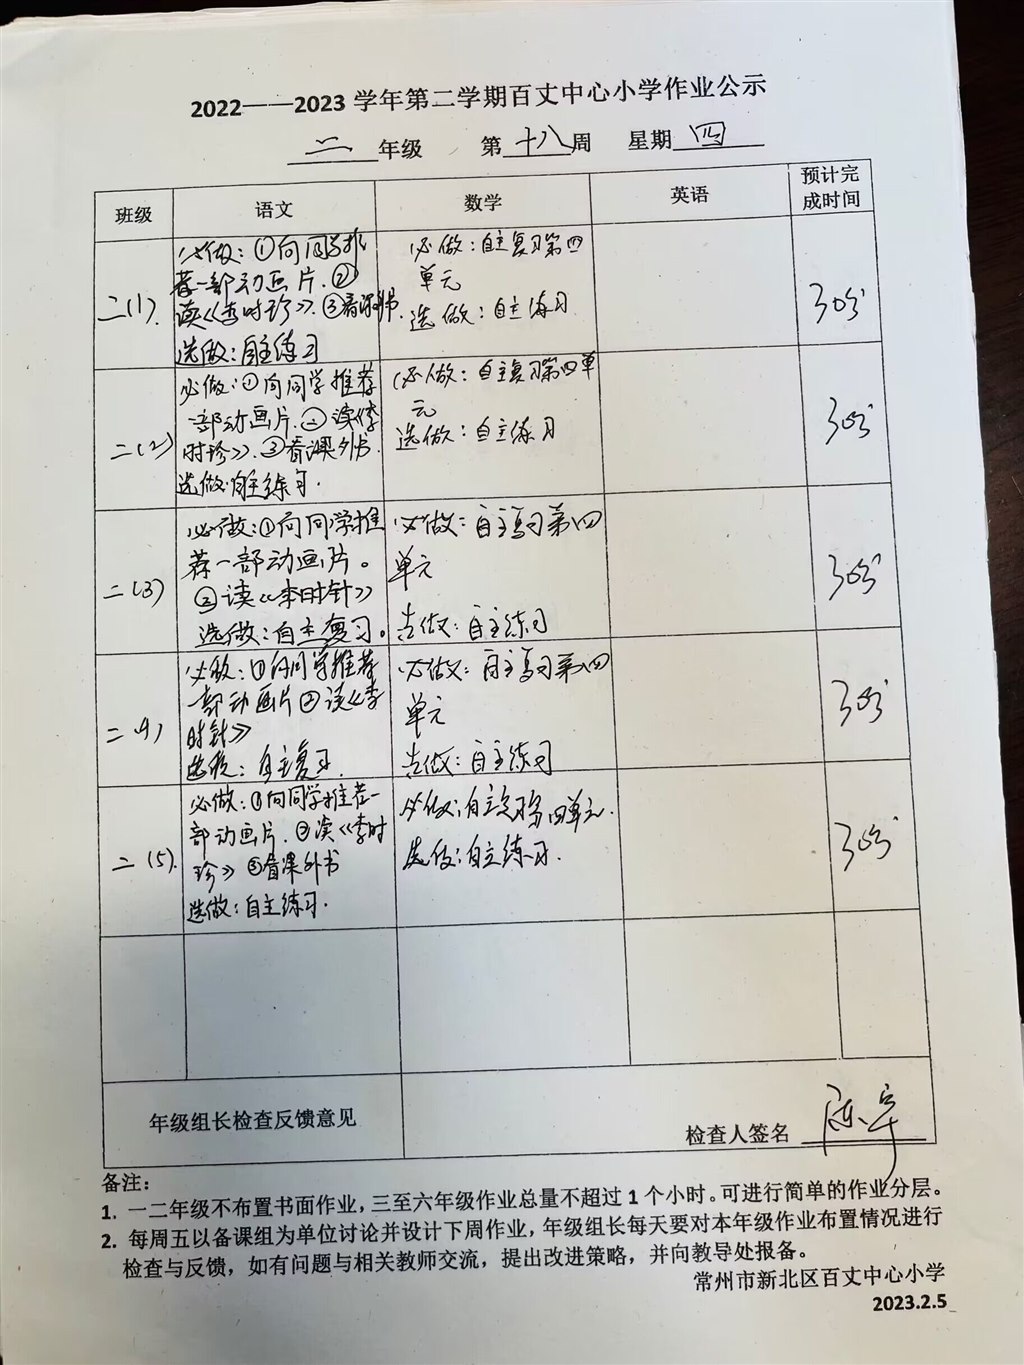 2022——2023 学年第二学期百丈中心小学作业公示
二 年级 第 十八 周 星期 四
班级 语文 数学 英语 预计完
成时间
二(1).
必做：①向同学推
荐一部动画片.②
读《李时珍》.③看课外书.
选做：自主练习
必做：自主复习第四
单元
选做：自主练习
30分
二(2)
必做：①向同学推荐
一部动画片.②读《李
时珍》.③看课外书.
选做：自主练习.
必做：自主复习第四单
元
选做：自主练习
30分
二(3)
必做：①向同学推
荐一部动画片。
②读《李时针》
选做：自主复习。
必做：自主复习第四
单元
选做：自主练习
30分
二(4)
必做：①向同学推荐
一部动画片②读《李
时针》
选做：自主复习.
必做：自主复习第四
单元
选做：自主练习
30分
二(5).
必做：①向同学推荐一
部动画片.②读《李时
珍》③看课外书
选做：自主练习.
必做：自主复习第四单元.
选做：自主练习.
30分
年级组长检查反馈意见
检查人签名
备注：
1. 一二年级不布置书面作业，三至六年级作业总量不超过 1 个小时。可进行简单的作业分层。
2. 每周五以备课组为单位讨论并设计下周作业，年级组长每天要对本年级作业布置情况进行
检查与反馈，如有问题与相关教师交流，提出改进策略，并向教导处报备。
常州市新北区百丈中心小学
2023.2.5